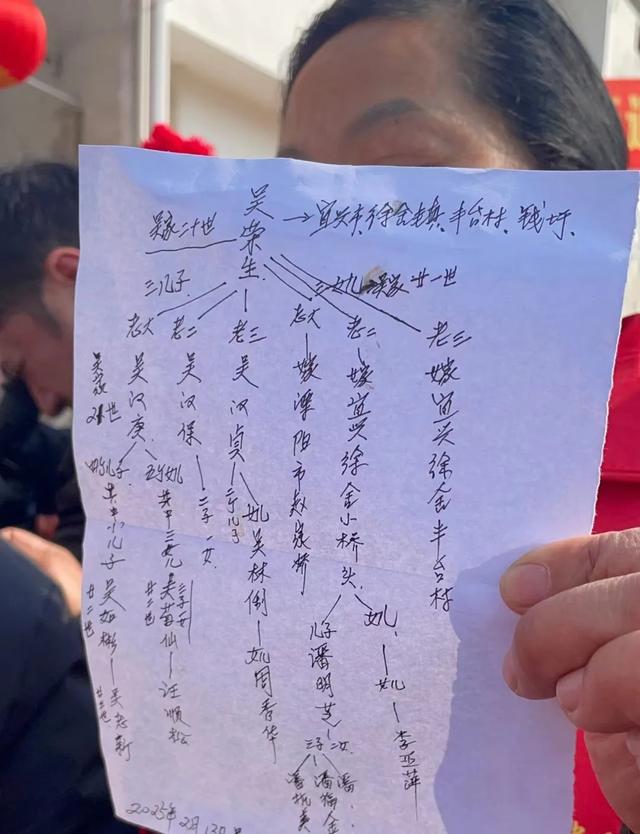 吴荣生→宜兴市徐舍镇、丰台村、钱圩、
吴家二十世
三儿子
三女儿 吴家廿一世
老大
老二
老三
老大
老二
老三
吴家21世
吴汉庚
吴汉保
吴汉贞
嫁溧阳市赵家桥
嫁宜兴徐舍小桥头
嫁宜兴徐舍丰台村
四个儿子
其中小儿子
吴如彬
吴志新
廿二世
廿三世
五个女儿
其中三女儿
吴苗仙
汪顺松
廿二世
二子一女
三个儿子
女儿吴林倒
女儿周香华
儿子潘明芝
三子二女
潘杭美
潘梅金
潘
女儿
女儿
李亚萍
2025年2月13日